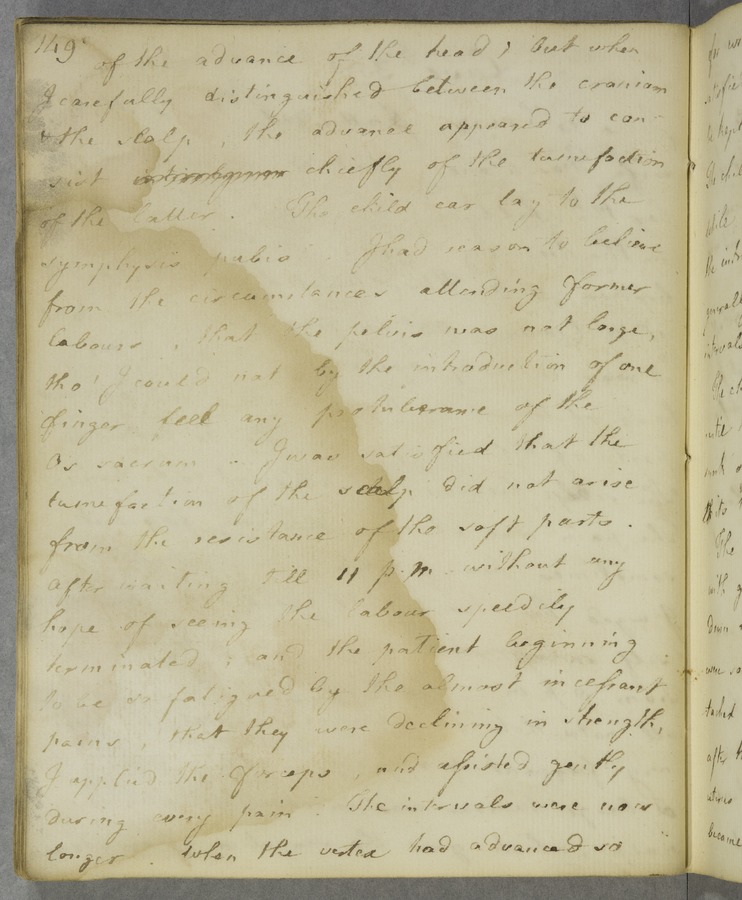 149 of the advance of the head ; but when
I carefully distinguished between the cranium
& the scalp , the advance appeared to con-
sist chiefly of the tumefaction
of the latter . The child ear lay to the
symphysis pubis . I had reason to believe
from the circumstances attending former
labours , that the pelvis was not large ,
tho' I could not by the introduction of one
finger feel any protuberance of the
Os sacrum . I was satisfied that the
tumefaction of the scalp did not arise
from the resistance of the soft parts .
After waiting till 11 p.m. without any
hope of seeing the labour speedily
terminated ; and the patient beginning
to be so fatigued by the almost incessant
pains , that they were declining in strength ,
I applied the forceps , and assisted gently
during every pain . The intervals were now
longer . When the vertex had advanced so